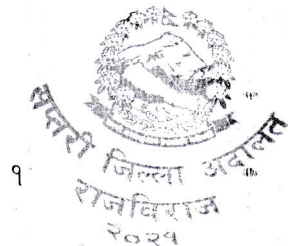 सप्तरी जिल्ला अदालत
१
राजविराज
२०२१